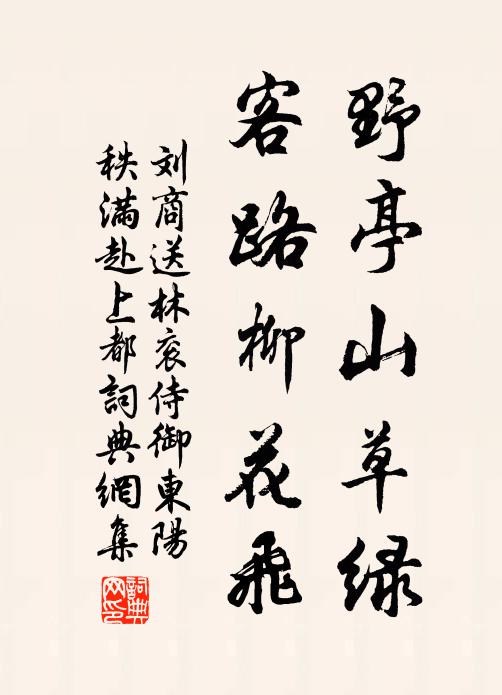 野亭山草绿
客路柳花飛
刘商送林衮侍御東陽
秩满赴上都詞典網集
詞典網印